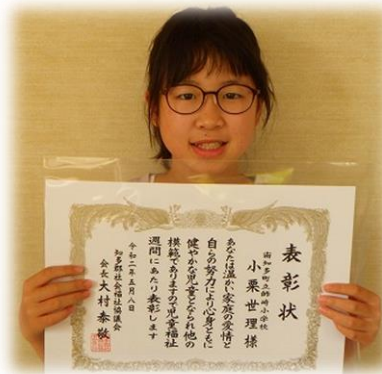 表彰状
南知多町立師崎小学校
小栗世理様
あなたは温かい家庭の愛情と
自らの努力により心身ともに
健やかな児童となられ他の
模範でありますので児童福祉
週間にあたり表彰します
令和二年五月八日
知多郡社会福祉協議会
会長 大村泰敬